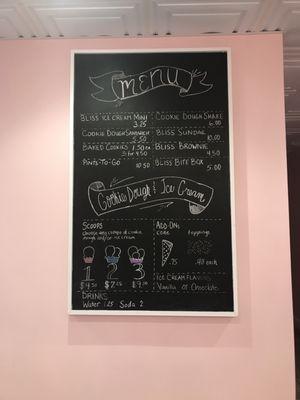 MENU
BLISS ICE CREAM MINI
3.25
COOKIE DOUGH SANDWICH
5.50
BAKED COOKIES 1.50
3 for 4.50
PINTS-TO-GO 10.50
COOKIE DOUGH SHAKE
6.00
BLISS SUNDAE
10.00
BLISS BROWNIE
4.50
BLISS BITE BOX
5.00
Cookie Dough & Ice Cream
SCOOPS
choose any scoops of cookie
dough and/or ice cream
1 2 3
$4.50
ADD-ONS
CONE toppings
.75
ICE CREAM FLAVORS
Vanilla or Chocolate
DRINKS
Water 1.25 Soda 2